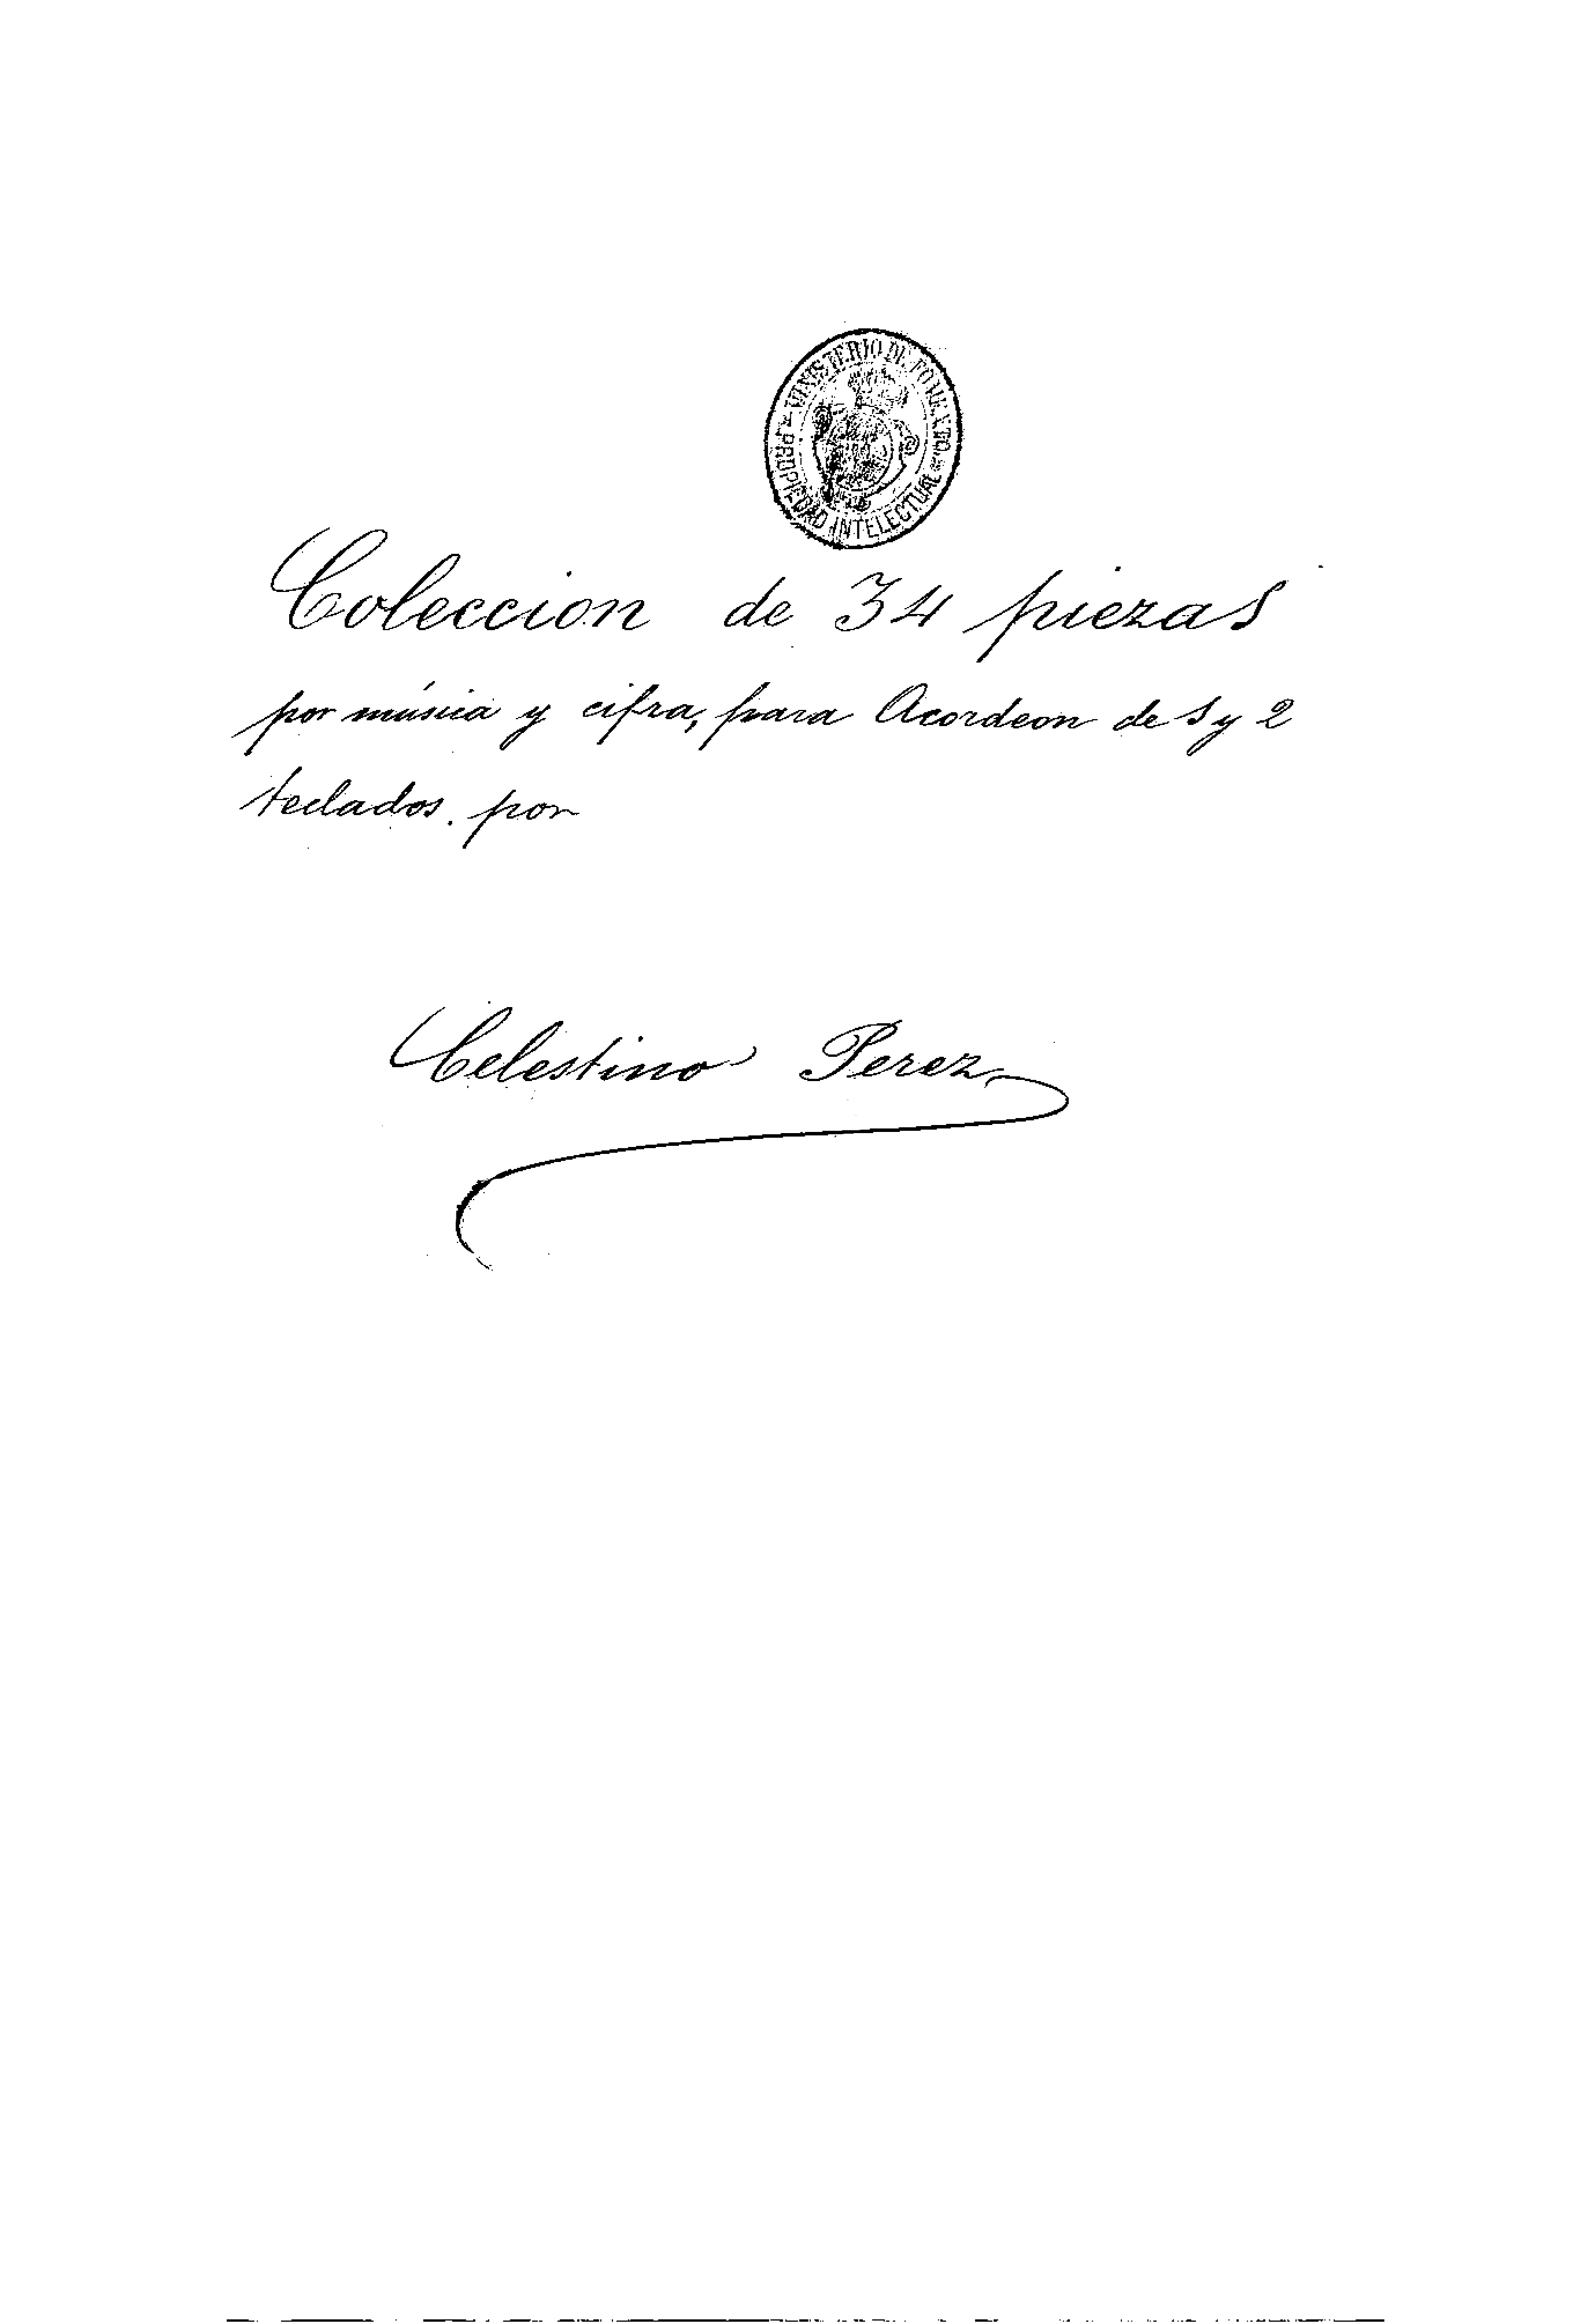 MINISTERIO DE FOMENTO
PROPIEDAD INTELECTUAL
Coleccion de 34 piezas
por música y cifra, para Acordeon de 1 y 2
teclados. por
Celestino Perez